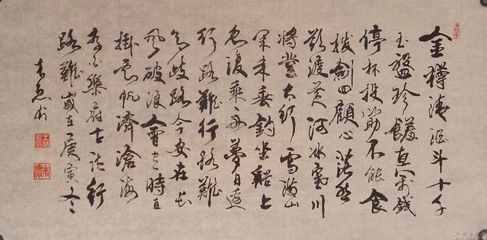 金樽清酒斗十千
玉盤珍饈直萬錢
停杯投箸不能食
拔劍四顧心茫然
欲渡黃河冰塞川
將登太行雪滿山
閑来垂釣坐谿上
忽復乘舟夢日邊
行路難行路難
多歧路今安在長
風破浪會有時直
掛雲帆濟滄海
李白樂府古詩行
路難歲在庚寅冬